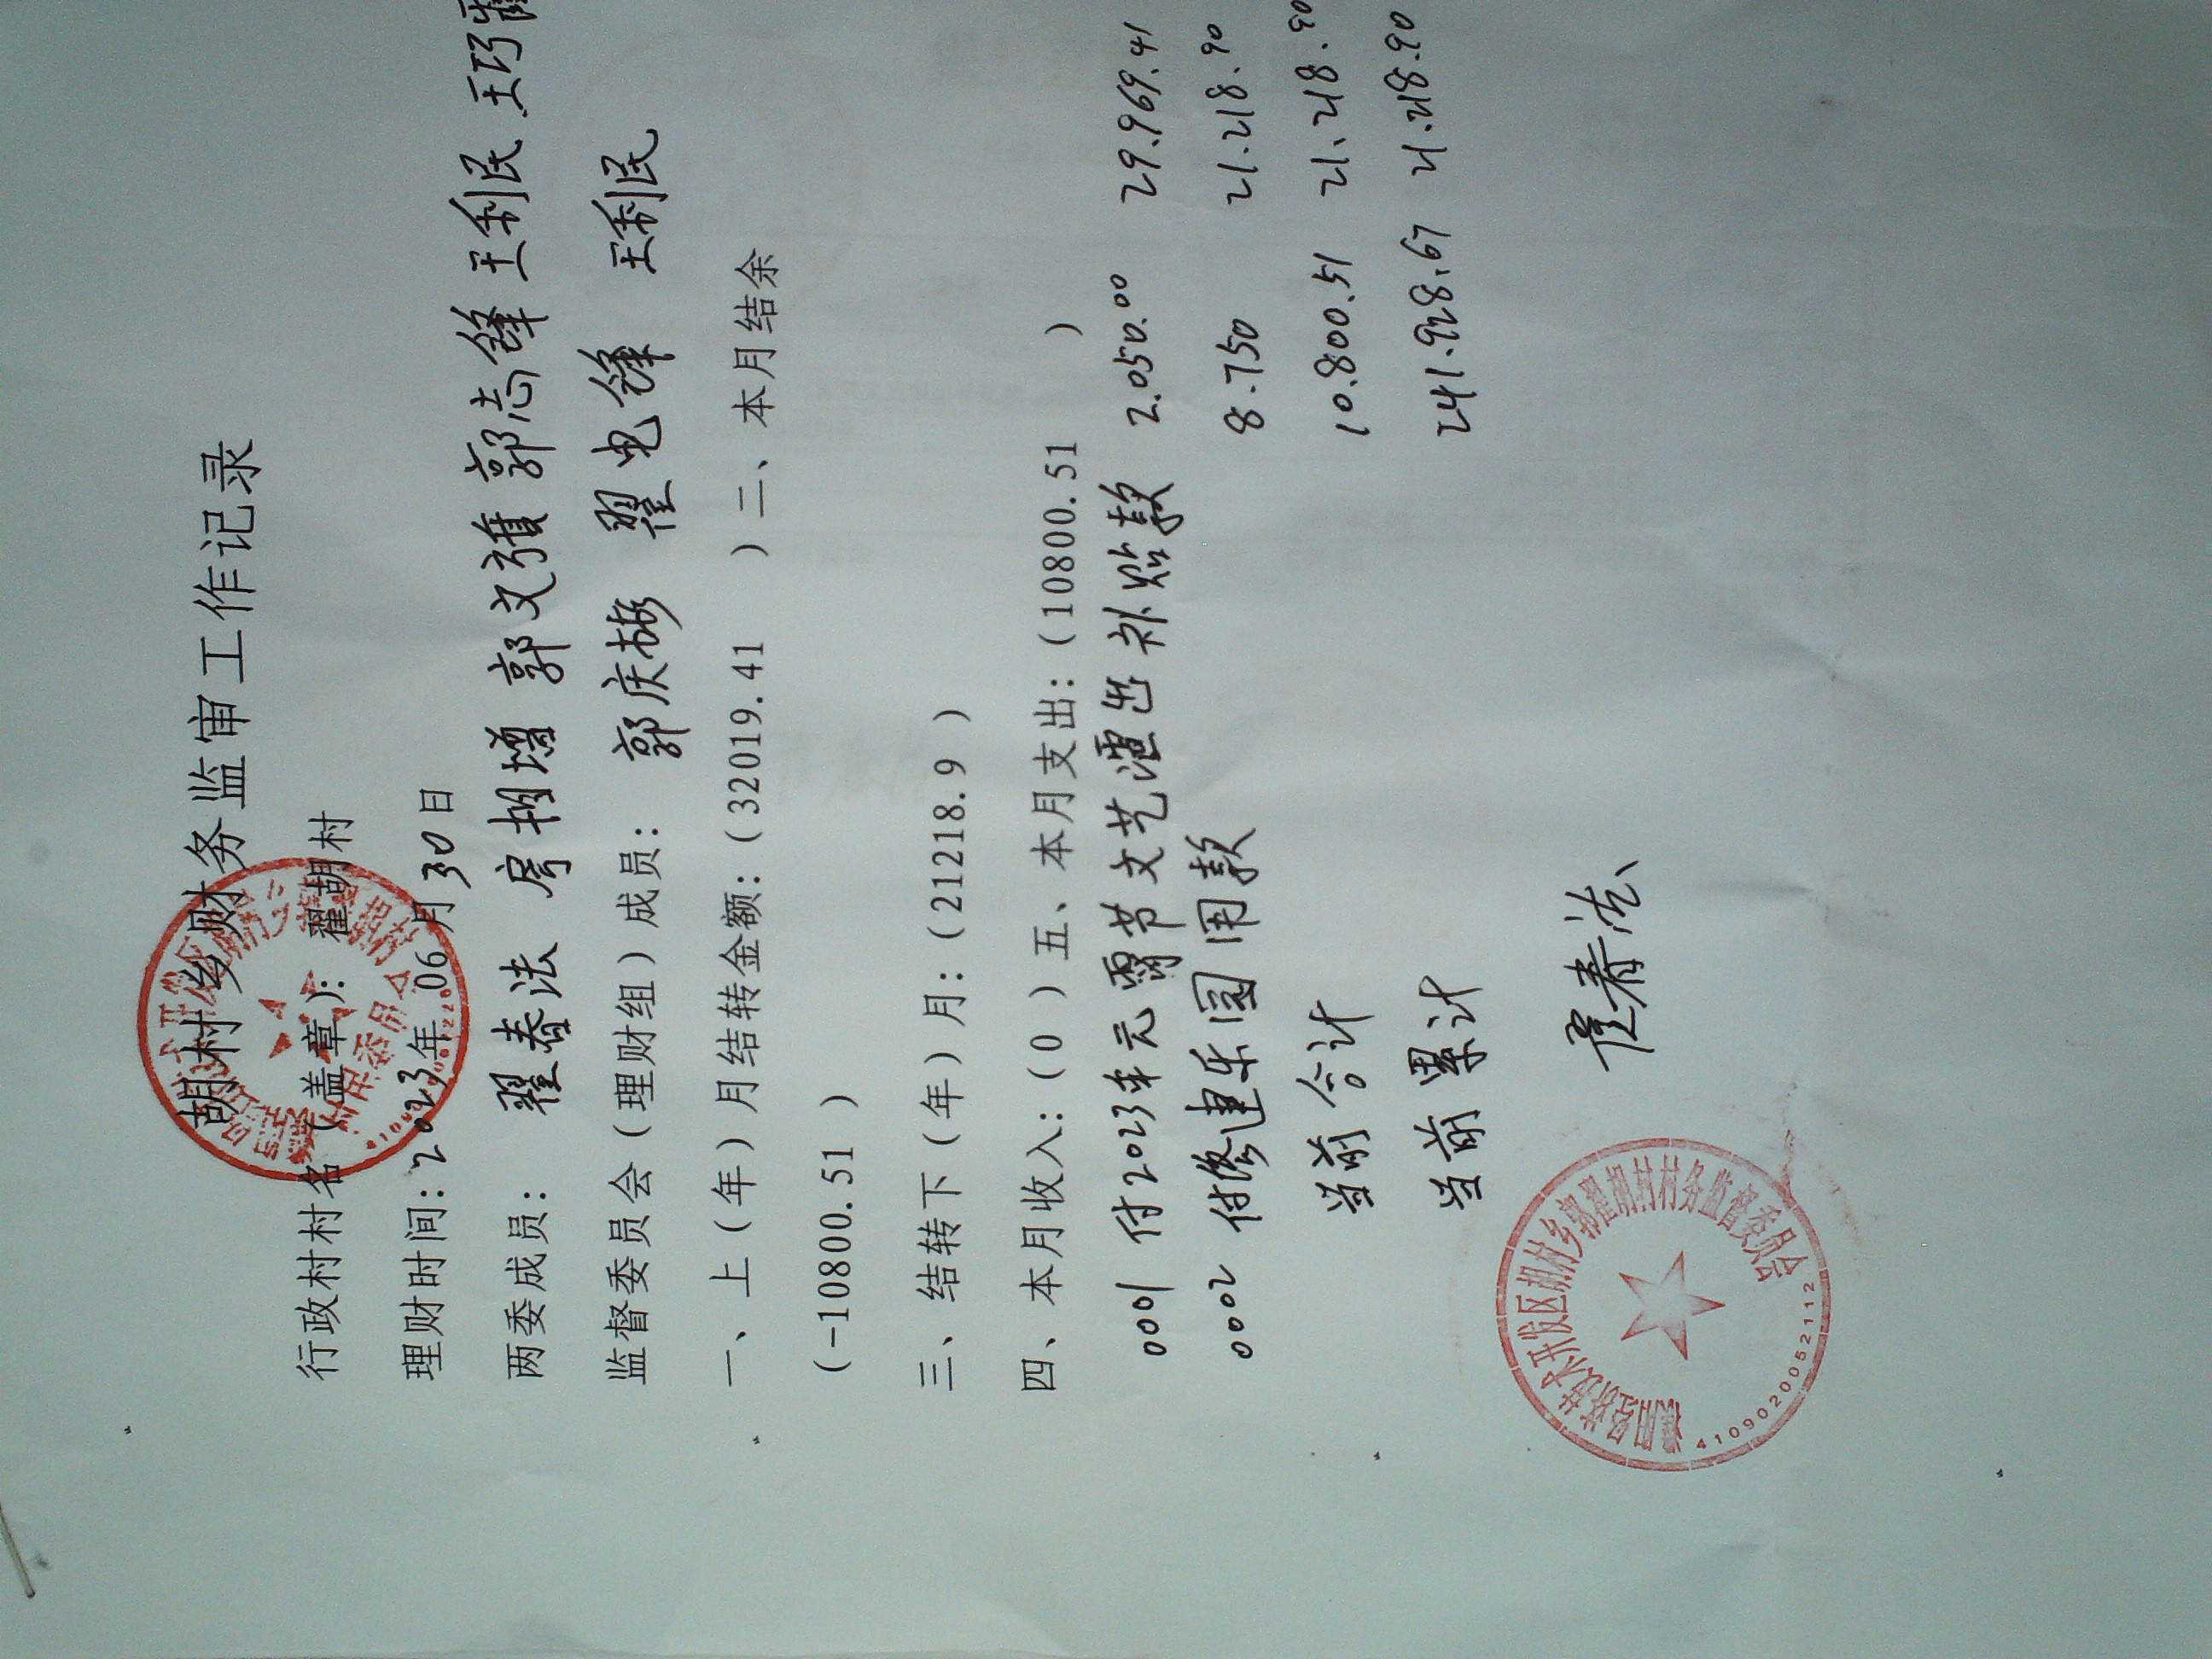 胡村乡财务监审工作记录
行政村村名（盖章）：翟胡村
理财时间：2023年06月30日
两委成员： 翟春法 房相增 郭文雅 郭志锋 王利民 王巧
监督委员会（理财组）成员： 郭庆彬 翟电锋 王利民
一、上（年）月结转金额：（32019.41 ）二、本月结余
（-10800.51 ）
三、结转下（年）月：（21218.9 ）
四、本月收入：（0 ）五、本月支出：（10800.51 ）
0001 付2023年元霄节文艺演出补贴款 2.050.00 29.969.41
0002 付修建乐园用款 8.750 21.218.90
当前合计 10.800.51 21.218.90
当前累计 241.928.67 21.218.90
翟春法
濮阳经济技术开发区胡村乡郭翟胡村村务监督委员会
4109020052112